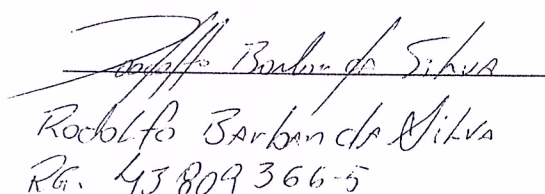 Rodolfo Barbon da Silva
Rodolfo BArbon dA SilvA
RG. 43809366-5